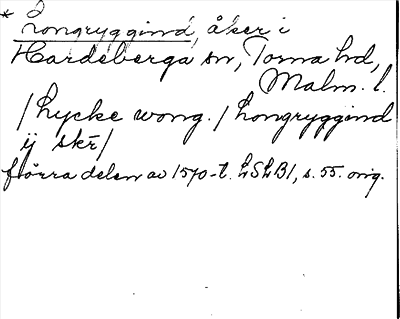 * Longryggind, åker i
Hardeberga sn, Torna hd,
Malm. l.
/Lycke wong. / Longryggind
ij skr/
förra delen av 1570-t. LSLB1, s. 55. orig.